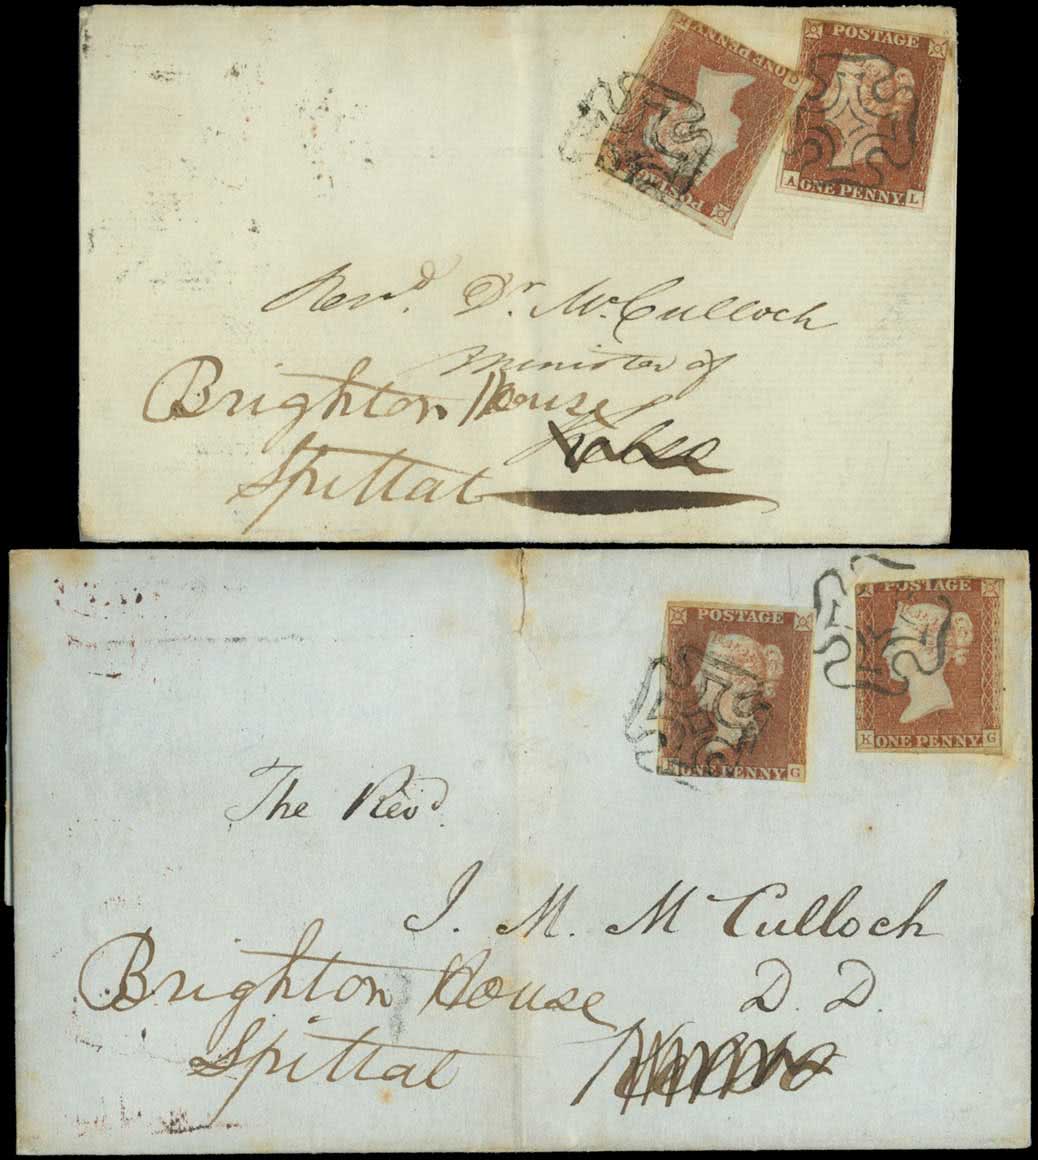 POSTAGE
A ONE PENNY L
G ONE PENNY E
POSTAGE
Revd. Dr. McCulloch
Minister of
Brighton House
Kelso
Spittal
POSTAGE
ONE PENNY G
POSTAGE
K ONE PENNY G
The Revd.
J. M. McCulloch
D. D.
Brighton House
Kelso
Spittal